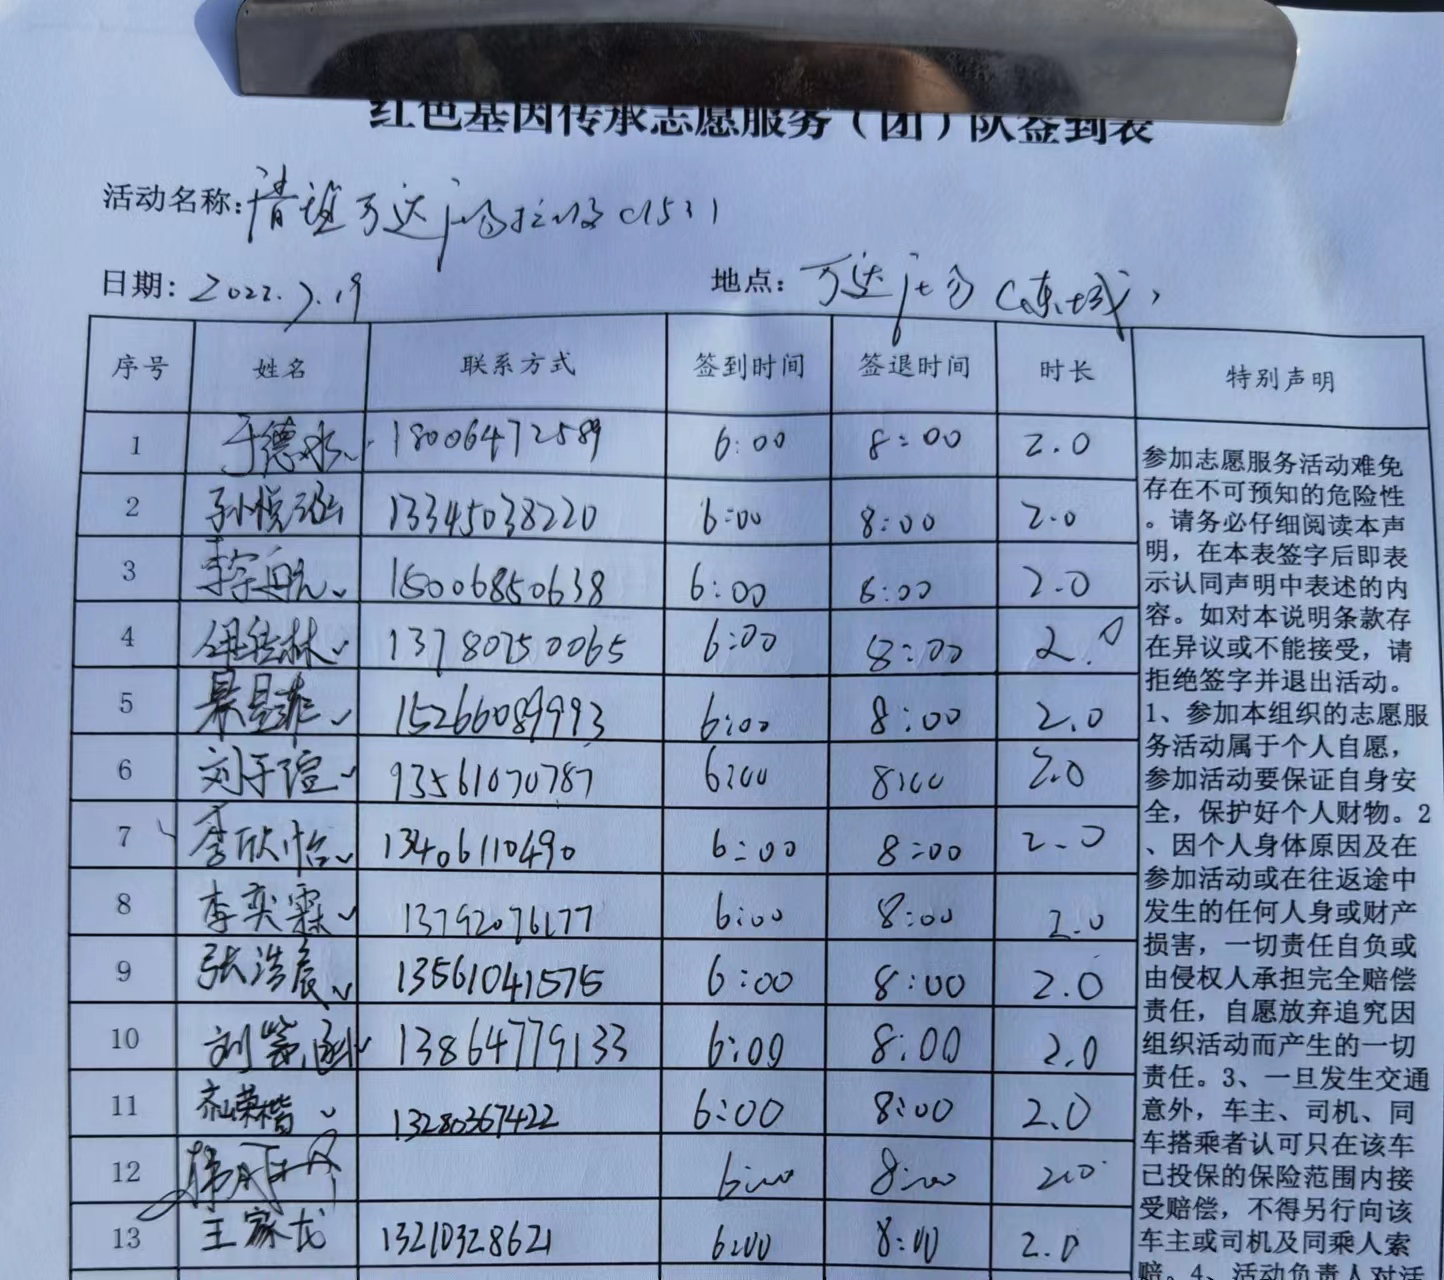 红色基因传承志愿服务（团）队签到表
活动名称:清理万达广场垃圾
日期: 2022.7.19 地点: 万达广场（东城）
序号 姓名 联系方式 签到时间 签退时间 时长 特别声明
1 于德水 18006472589 6:00 8:00 2.0
2 孙悦涵 13345038220 6:00 8:00 2.0
3 李宇航 15006850638 6:00 8:00 2.0
4 林 13780750065 6:00 8:00 2.0
5 15266089993 6:00 8:00 2.0
6 刘于瑄 93561070787 6:00 8:00 2.0
7 李欣怡 13406110490 6:00 8:00 2.0
8 李奕霖 13792076177 6:00 8:00 2.0
9 张浩宸 13561041575 6:00 8:00 2.0
10 刘 涵 13864779133 6:00 8:00 2.0
11 荣楷 13280367422 6:00 8:00 2.0
12 6:00 8:00 2.0
13 王家龙 13210328621 6:00 8:00 2.0
参加志愿服务活动难免
存在不可预知的危险性
。请务必仔细阅读本声
明，在本表签字后即表
示认同声明中表述的内
容。如对本说明条款存
在异议或不能接受，请
拒绝签字并退出活动。
1、参加本组织的志愿服
务活动属于个人自愿，
参加活动要保证自身安
全，保护好个人财物。2
、因个人身体原因及在
参加活动或在往返途中
发生的任何人身或财产
损害，一切责任自负或
由侵权人承担完全赔偿
责任，自愿放弃追究因
组织活动而产生的一切
责任。3、一旦发生交通
意外，车主、司机、同
车搭乘者认可只在该车
已投保的保险范围内接
受赔偿，不得另行向该
车主或司机及同乘人索
赔。4、活动负责人对活